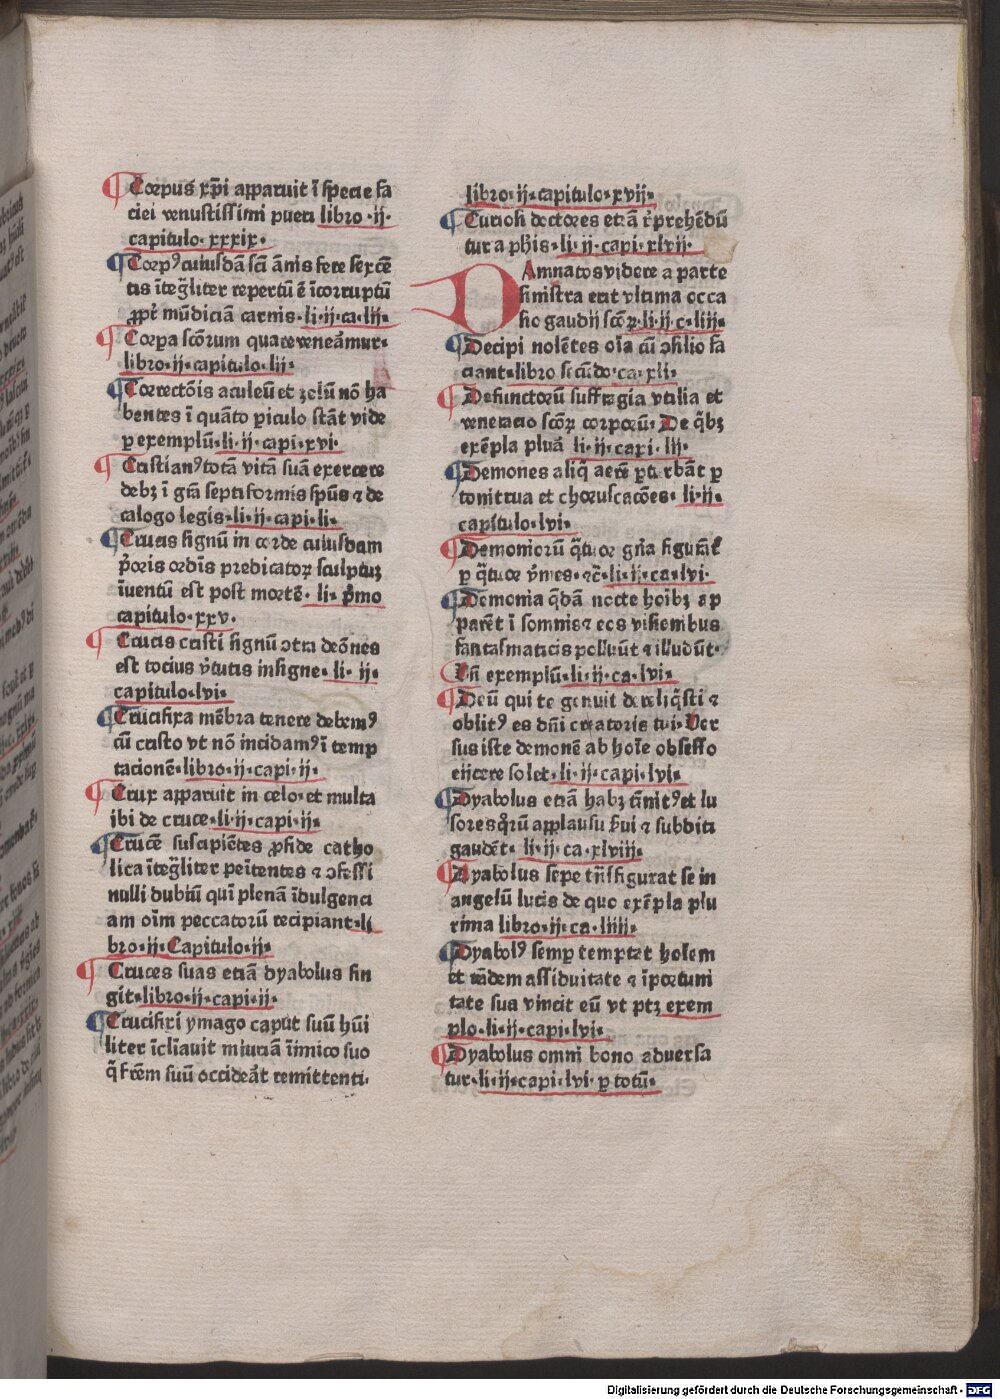 Corpus xp̄i apparuit ī specie fa
ciei venustissimi pueri libro ·ij·
capitulo· xxxix·
Corpꝰ cuiusdā sci āīs fere sexcē
tis ītegl̄iter repertū ē īcorruptū
ꝓpt̄ mūdiciā carnis· li·ij·ca·lij·
Corpa scōrum quare veneāmur·
libro·ij·capitulo·lij·
Correctōis aculeū et zelū nō ha
bentes ī quāto ꝑiculo stāt vide
ꝑ exemplū·li·ij·capi·xvi·
Cristianꝰ totā vitā suā exercere
debꝫ ī grā septiformis spūs ⁊ de
calogo legis·li·ij·capi·li·
Crucis signū in corde cuiusdam
p̄oris ordīs predicatoꝝ sculptuꝫ
īuentū est post mortē· li· p̄mo
capitulo·xxv·
Crucis cristi signū ꝯtra deōnes
est tocius v̄tutis insigne· li· ij·
capitulo·lvi·
Crucifixa mēbra tenere debemꝰ
cū cristo vt nō incidamꝰ ī temp
tacionē·libro·ij·capi·ij·
Crux apparuit in celo·et multa
ibi de cruce·li·ij·capi·ij·
Crucē suscipiētes ꝓ fide catho
lica ītegl̄iter peītentes ⁊ ꝯfessi
nulli dubiū quī plenā īdulgenci
am oīm peccatorū recipiant·li
bro·ij·Capitulo·ij·
Cruces suas etiā dyabolus fin
git·libro·ij·capi·ij·
Crucifixi ymago caput suū hūi
liter īcliauit miuriā īimico suo
q̄ frēm suū occideāt remittenti·
libro·ij·capitulo·xvij·
Curiosi doctores etiā r̄prehēdū
tur a ph̄is·li·ij·capi·xlvij·
DAmnatos videre a parte
sinistra erit vltima occa
sio gaudij scōꝝ·li·ij·c·liij·
Decipi nolētes oīa cū ꝯsilio fa
ciant·libro secūdo·ca·xli·
Defunctorū suffragia vtilia et
veneracio scōꝝ corpoꝝ· De q̄bꝫ
exēpla plura li·ij·capi·lij·
Demones aliq̄ aerē ꝑturbāt ꝑ
tonitrua et choruscacōes· li·ij·
capitulo·lvi·
Demoniorū q̄tuor gn̄a figurāt̄
ꝑ q̄tuor v̄mes·⁊c̄·li·ij·ca·lvi·
Demonia q̄dā nocte hoībꝫ ap
parēt ī somnis ⁊ eos visienibus
fantasmaticis polluūt ⁊ illudūt·
Vn̄ exemplū·li·ij·ca·lvi·
Deū qui te genuit dereliq̄sti ⁊
oblitꝰ es dn̄i creatoris tui· Ver
sus iste demonē ab hoīe obsesso
eijcere solet·li·ij·capi·lvi·
Dyabolus etiā habꝫ cānitꝰ et lu
sores qͦrū applausu s̄ui ⁊ subditi
gaudēt· li·ij·ca·xlviij·
Dyabolus sepe trāsfigurat se in
angelū lucis de quo exēpla plu
rima libro·ij·ca·liiij·
Dyabolꝰ semꝑ temptat hoīem
et tādem assiduitate ⁊ īportuni
tate sua vincit eū vt ptꝫ exem
plo·li·ij·capi·lvi·
Dyabolus omni bono aduersa
tur·li·ij·capi·lvi·ꝑ totū·
Digitalisierung gefördert durch die Deutsche Forschungsgemeinschaft - DFG